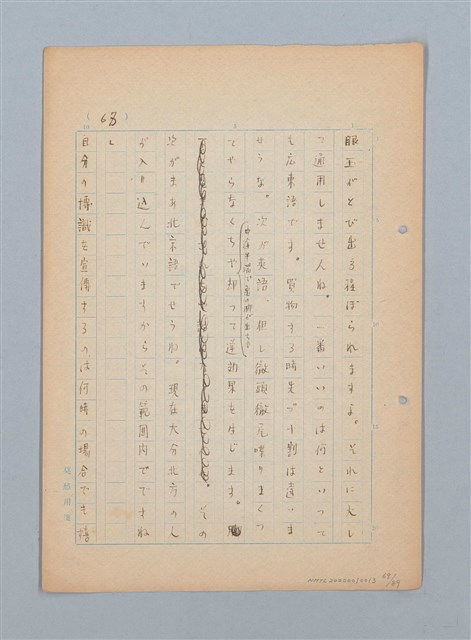 (63)
眼玉がとび出る程ぼられますよ。それに大し
て通用しませんね。一番いいのは何といつて
も広東語です。買物する時先づ一割は違いま
せうな。次が英語、但し徹頭徹尾喋りまくつ
てやらなくちや却つて逆効果を生じます。
中途半端で
その
次がまあ北京語でせうね。現在大分北方の人
が入り込んでいますからその範囲内でですね
」
自分の博識を宣傳するのは何時の場合でも悟